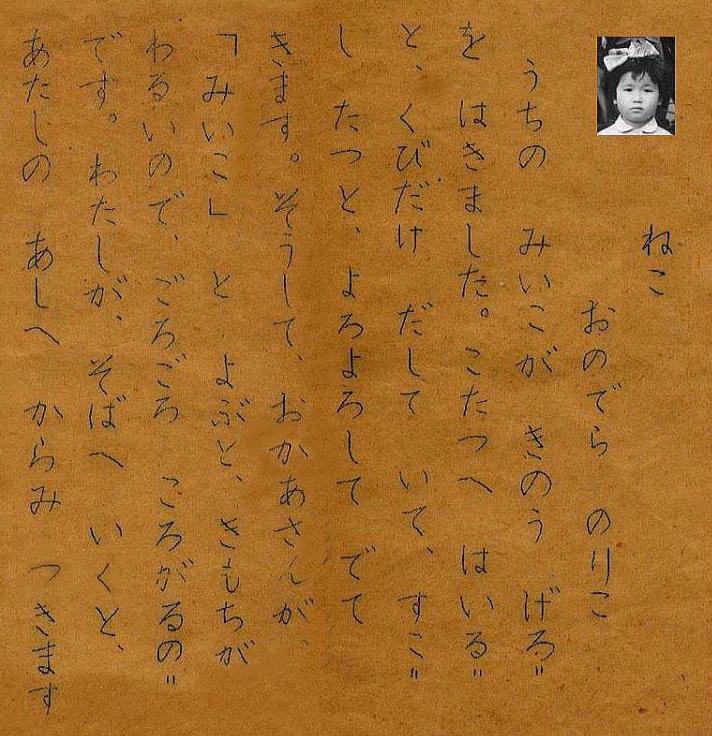 ねこ
おのでら のりこ
うちの みいこが きのう げろ〃
を はきました。こたつへ はいる〃
と、くびだけ だして いて、すこ〃
し たつと、よろよろして でて
きます。そうして、おかあさんが、
「みいこ」 と よぶと、きもちが
わるいので、ごろごろ ころがるの〃
です。わたしが、そばへ いくと、
あたしの あしへ からみ つきます